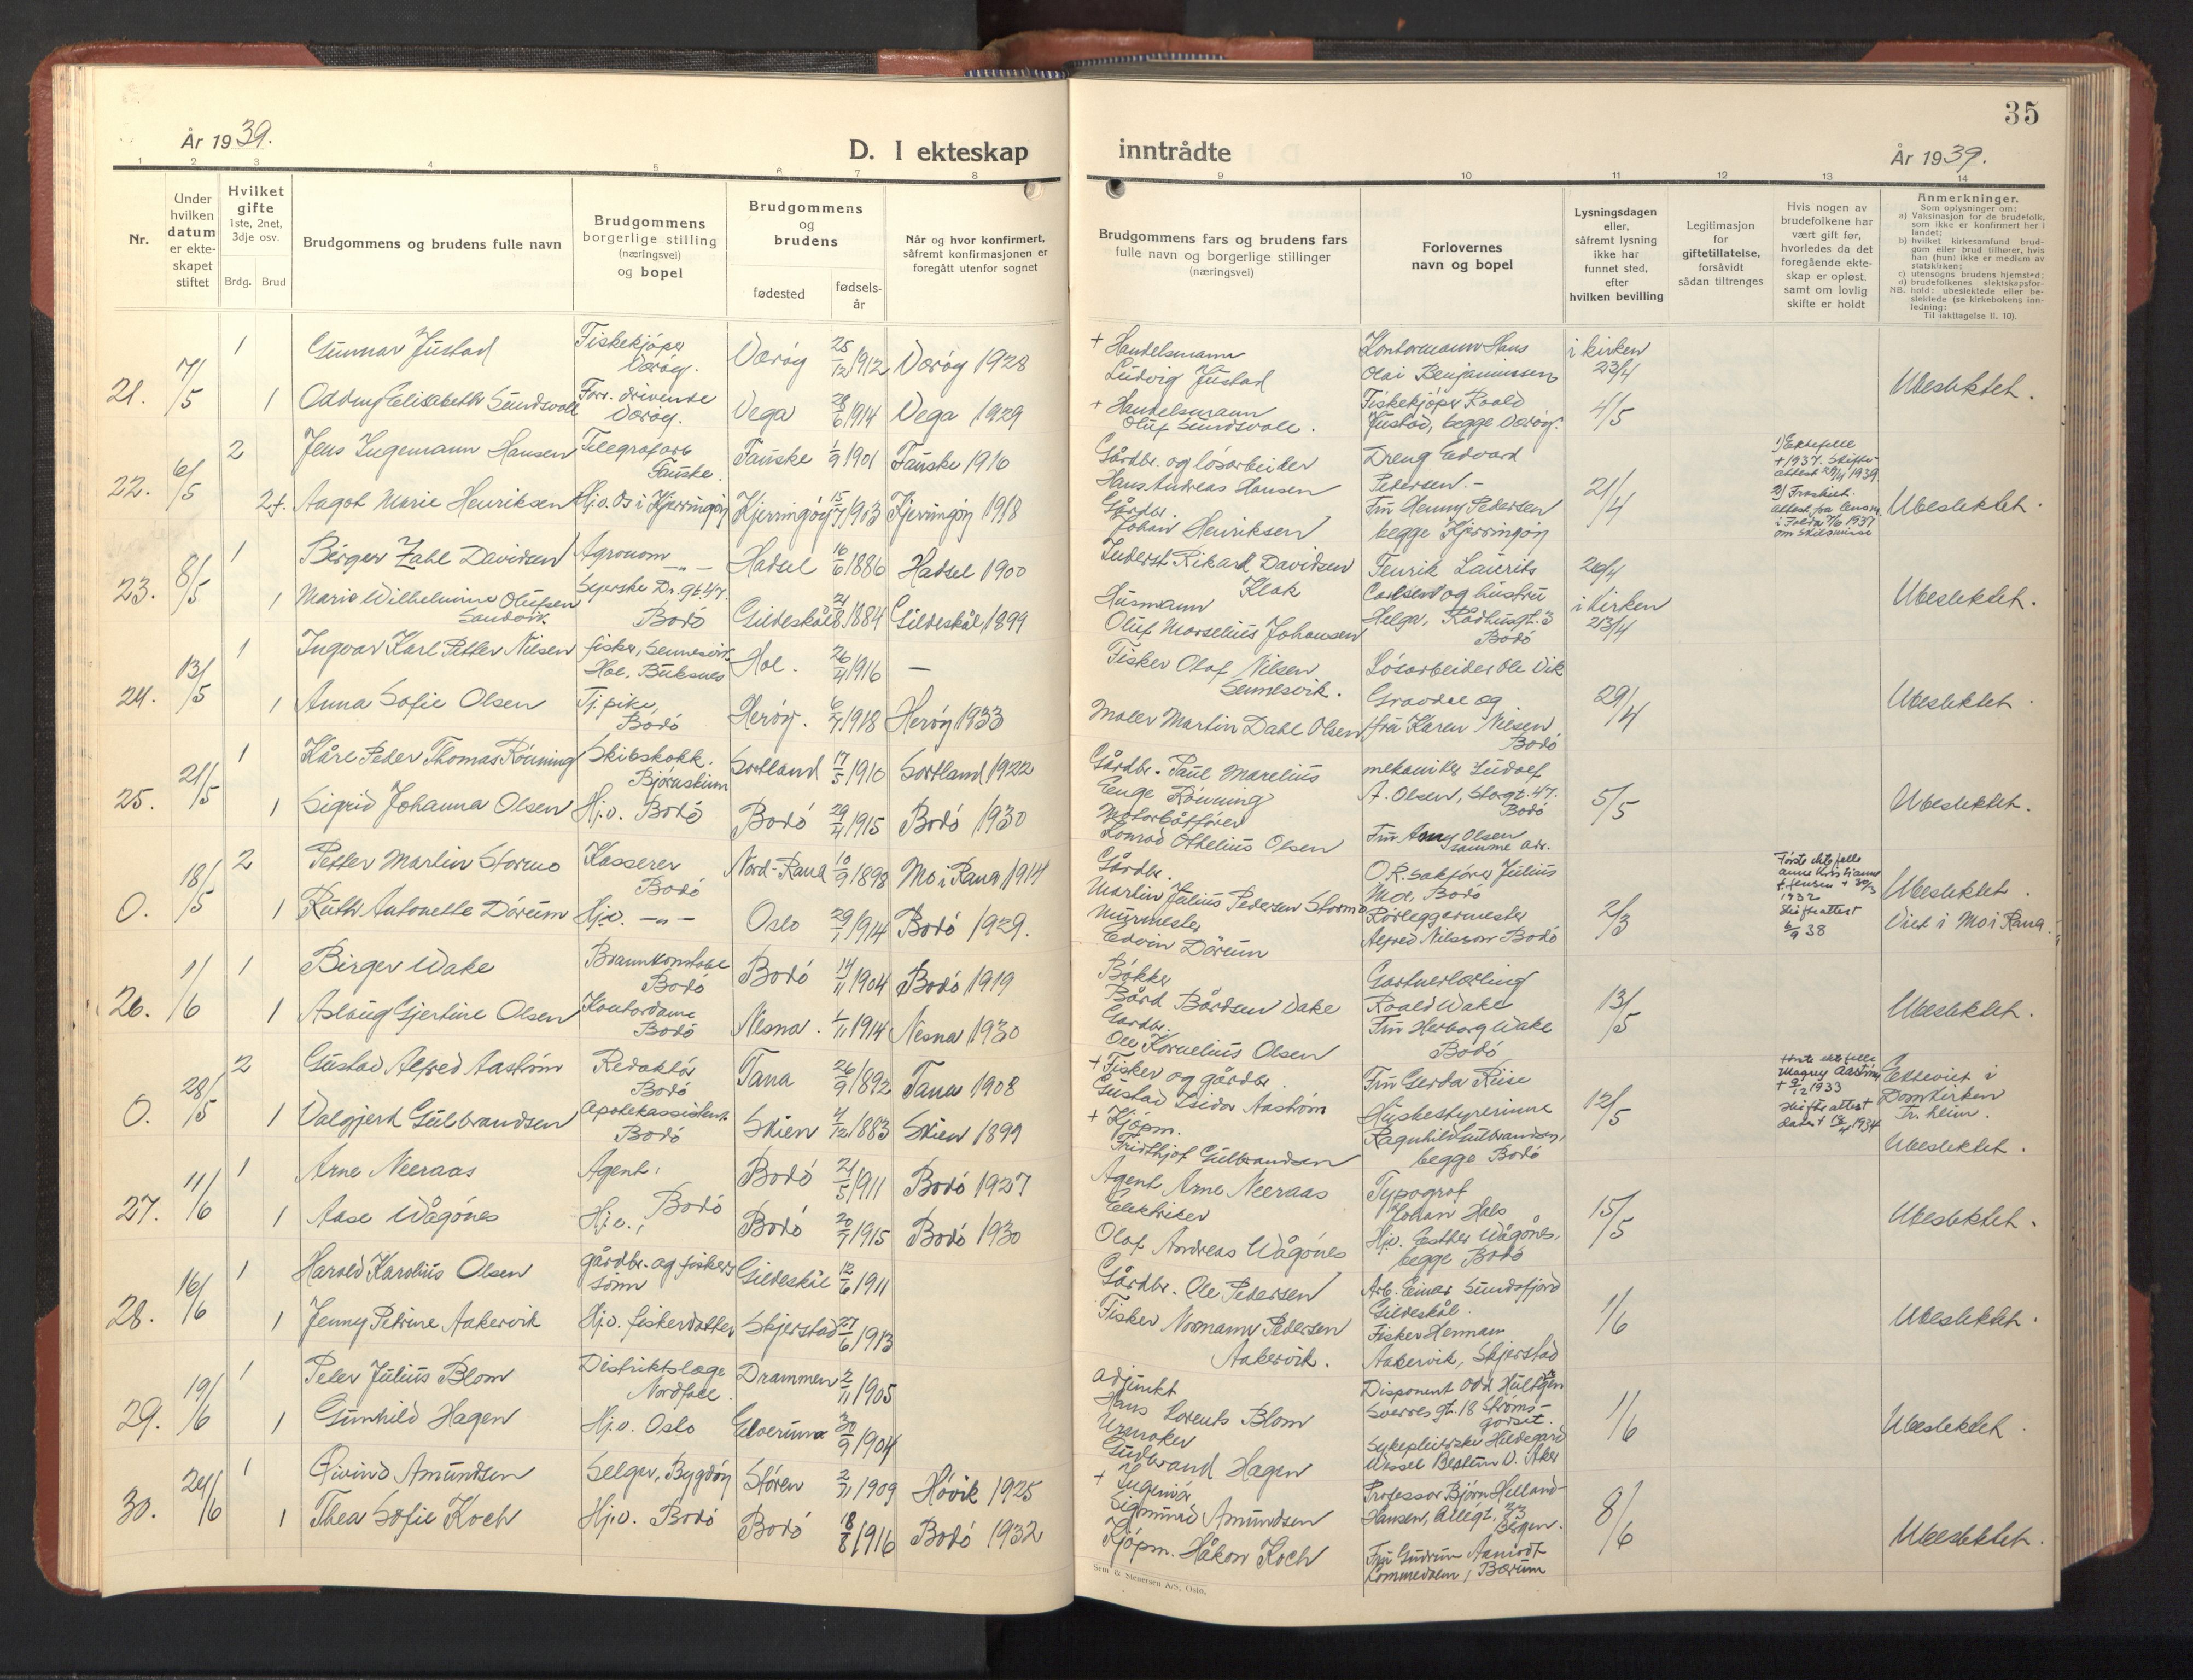 35
År 1939.
D. I ekteskap
inntrådte
År 1939.
1 2 3 4 5 6 7 8
9 10 11 12 13 14
Nr.
Under
hvilken
datum
er ekte-
skapet
stiftet
Hvilket
gifte
1ste, 2net,
3dje osv.
Brdg. Brud
Brudgommens og brudens fulle navn
Brudgommens
borgerlige stilling
(næringsvei)
og bopel
Brudgommens
og
brudens
fødested
fødsels-
år
Når og hvor konfirmert,
såfremt konfirmasjonen er
foregått utenfor sognet
Brudgommens fars og brudens fars
fulle navn og borgerlige stillinger
(næringsvei)
Forlovernes
navn og bopel
Lysningsdagen
eller,
såfremt lysning
ikke har
funnet sted,
efter
hvilken bevilling
Legitimasjon
for
giftetillatelse,
forsåvidt
sådan tiltrenges
Hvis nogen av
brudefolkene har
vært gift før,
hvorledes da det
foregående ekte-
skap er opløst.
samt om lovlig
skifte er holdt
Anmerkninger.
Som oplysninger om:
a) Vaksinasjon for de brudefolk,
som ikke er konfirmert her i
landet;
b) hvilket kirkesamfund brud-
gom eller brud tilhører, hvis
han (hun) ikke er medlem av
statskirken;
c) utensogns brudens hjemsted;
d) brudefolkenes slektskapsfor-
NB. hold: ubeslektede eller be-
slektede (se kirkebokens inn-
ledning;
Til iakttagelse II. 10).
21. 7/5
1 Gunnar Justad Fiskekjøper Værøy. Værøy 25/12 1912 Værøy 1928
1 Oddny Elisabeth Sundsvoll Forr. drivende Værøy. Vega 28/6 1914 Vega 1929
+ Handelsmann
Ludvig Justad
+ Handelsmann
Oluf Sundsvoll.
Kontormann Hans
Olai Benjaminsen
Fiskekjøper Roald
Justad, begge Værøy.
i kirken
23/4
4/5
Ubeslektet.
22. 6/5
2 Jens Ingemann Hansen Telegrafarb Fauske. Fauske 1/9 1901 Fauske 1916
2 f. Aagot Marie Henriksen Hj.v. Os i Kjerringøy Kjerringøy 15/7 1903 Kjerringøy 1918
Gårdbr. og løsarbeider
Hans Andreas Hansen
Gårdbr.
Johan Henriksen
Dreng Edvard
Pedersen.-
Fru Henny Pedersen
begge Kjerringøy
21/4
1) Ektefelle
+ 1937. Skifte-
attest 29/4 1939.
2) Fraskilt.
attest fra lensm.
i Folda 7/6 1937
om skilsmisse
Ubeslektet.
23. 8/5
1 Birger Zahl Davidsen Agronom —"— Hadsel 16/6 1886 Hadsel 1900
1 Marie Wilhelmine Olufsen Sandvik. Syerske Dr. gt. 47. Bodø Gildeskål 21/8 1884 Gildeskål 1899
Inderst Rikard Davidsen
Klak
Husmann
Oluf Morselius Johansen
Fenrik Laurits
Carlsen og hustru
Helga, Rådhusgt. 3
Bodø
26/4
i kirken
23/4
Ubeslektet.
24. 13/5
1 Ingvar Karl Petter Nilsen fisker, Sennesvik. Hol, Buksnes Hol. 26/4 1916 —
1 Anna Sofie Olsen Tj. pike, Bodø Herøy. 6/7 1918 Herøy 1933
Fisker Olaf Nilsen
Sennesvik.
Maler Martin Dahl Olsen
Løsarbeider Ole Vik
Gravdal og
fru Karen Nilsen
Bodø
29/4
Ubeslektet.
25. 21/5
1 Kåre Peder Thomas Rønning Skibskokk. Bjørnskinn Sortland 17/5 1910 Sortland 1922
1 Sigrid Johanna Olsen Hj.v. Bodø Bodø 29/4 1915 Bodø 1930
Gårdbr. Paul Marelius
Enge Rønning
Motorbåtfører
Konrad Othelius Olsen
mekaniker Ludolf
A. Olsen, Storgt. 47.
Bodø
Fru Anny Olsen
samme adr.
5/5
Ubeslektet.
0. 18/5
2 Petter Martin Stormo Kasserer Bodø Nord-Rana 10/9 1898 Mo i Rana 1914
1 Ruth Antonette Dørum Hj.v. —"— Oslo 29/1 1914 Bodø 1929.
Gårdbr.
Martin Julius Pedersen Stormo
Murmester
Edvin Dørum
O.R.sakfører Julius
Moe, Bodø
Rørleggermester
Alfred Nilsson Bodø
2/3
Første ektefelle
Anne Kristianne
f. Jensen + 30/3
1932
Skifteattest
6/9 38
Ubeslektet.
Viet i Mo i Rana.
26. 11/6
1 Birger Wake Brannkonstabel Bodø Bodø 14/11 1904 Bodø 1919
1 Aslaug Gjertine Olsen Kontordame Bodø Nesna. 1/11 1914 Nesna 1930
Bøkker
Bård Bårdsen Wake
Gardbr.
Ole Kornelius Olsen
Gartnerlærling
Roald Wake
Fru Herborg Wake
Bodø
13/5
Ubeslektet.
0. 28/5
2 Gustav Alfred Aastrøm Redaktør Bodø Tana 26/9 1892 Tana 1908
1 Valgjerd Gulbrandsen Apotekassistent Bodø Skien 4/12 1883 Skien 1899
+ Fisker og gårdbr.
Gustav Isidor Aastrøm
+ Kjøpm.
Fridthjof Gulbrandsen
Fru Gerda Riise
Husbestyrerinne
Ragnhild Gulbrandsen,
begge Bodø
12/5
første ektefelle
Magny Aastrøm
+ 9/12 1933
Skifteattest
datert 16/4 1934
Ektevict i
Domkirken
Tr. heim.
Ubeslektet.
27. 11/6
1 Arne Neeraas Agent, Bodø Bodø 21/5 1911 Bodø 1927
1 Aase Wågønes Hj.v., Bodø 20/7 1915 Bodø 1930
Agent Arne Neeraas
Elektriker
Olaf Andreas Wågønes
Typograf
Johan Hals
Hj.v. Esther Wågønes,
begge Bodø
15/5
Ubeslektet.
28. 16/6
1 Harald Karolius Olsen gårdbr. og fiskers sønn Gildeskål 12/6 1911
1 Jenny Petrine Aakervik Hj.v. fiskerdatter Skjerstad 27/6 1913
Gårdbr. Ole Pedersen
Fisker Normann Pedersen
Aakervik.
Arb. Einar Sundsfjord
Gildeskål.
Fisker Herman
Aakervik, Skjerstad
1/6
Ubeslektet.
29. 19/6
1 Peter Julius Blom Distriktslæge Nordfold. Drammen 2/11 1905
1 Gunhild Hagen Hj.v. Oslo Elverum 30/9 1904
adjunkt
Hans Lorents Blom
Urmaker
Gudbrand Hagen
Disponent Odd Hultgren
Sverres gt. 18 Strøms-
godset.
Sykepleierske Hildegard
Wessel Bestun V. Aker
1/6
Ubeslektet.
30. 24/6
1 Øivind Amundsen Selger, Bygdøy Støren 2/11 1909 Høvik 1925
1 Thea Sofie Koch Hj.v. Bodø Bodø 18/8 1916 Bodø 1932
+ Ingeniør
Sigmund Amundsen
Kjøpm. Håkon Koch
Professor Bjørn Helland-
Hansen, Allégt. 33
Bergen.
Fru Gudrun Aamodt
Lommedalen, Bærum
8/6
Ubeslektet.
Sem & Stenersen A/S, Oslo.